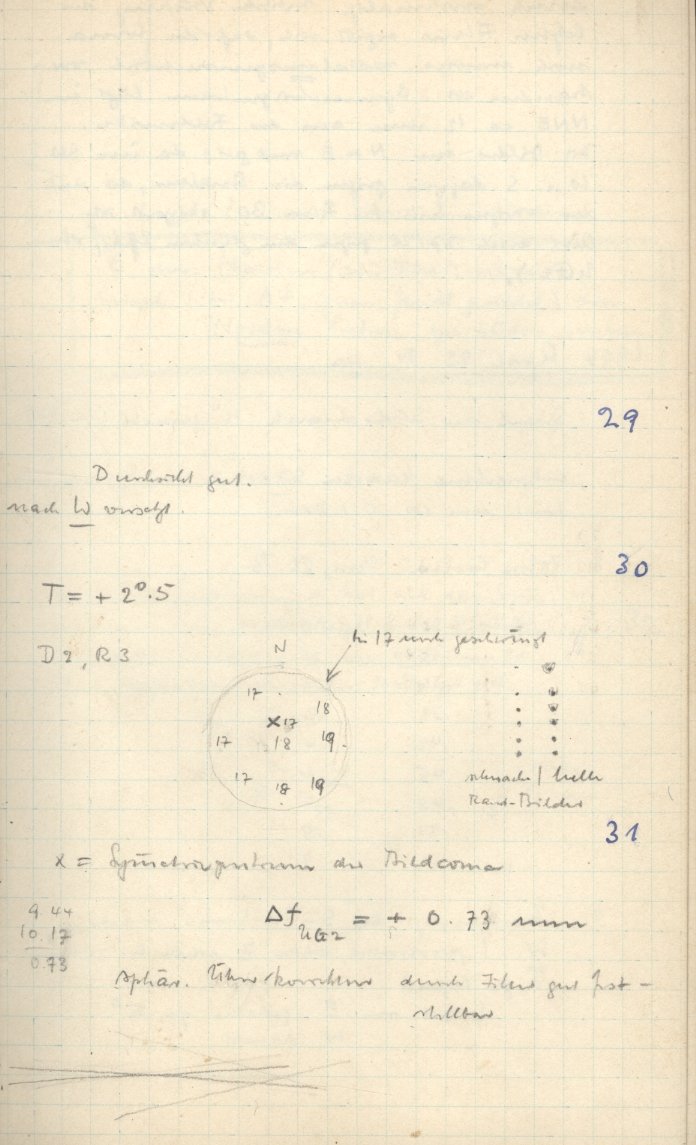 29
Durchsicht gut.
nach W versetzt.
30
T = + 2°.5
bis 17 noch geschwänzt
D2, R3
N
17
18
x 17
17 18 19
17 18 19
schwache | helle
Rand-Bilder
31
x = Symmetriezentrum der Bildcoma
9 44
10.17
0.73
Δf UG2 = + 0.73 mm
sphär. Überkorrektur durch Filter gut fest-
stellbar